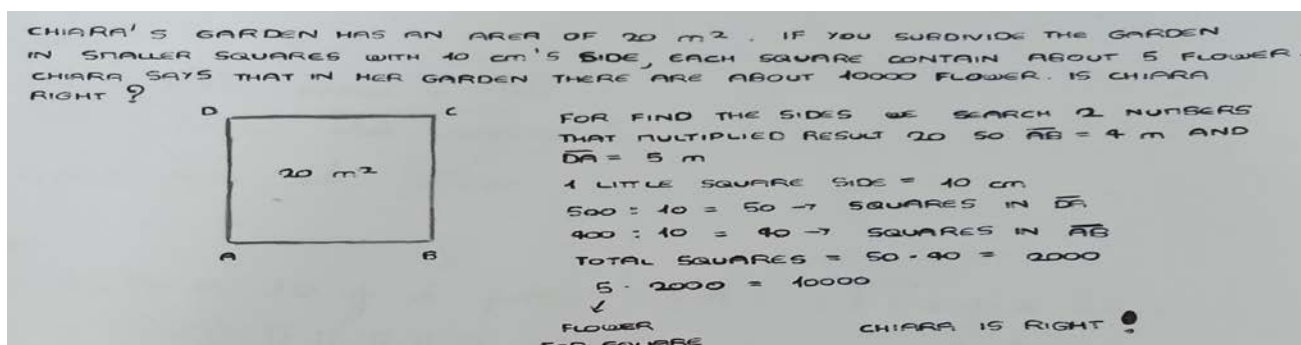 CHIARA'S GARDEN HAS AN AREA OF 20 m². IF YOU SUBDIVIDE THE GARDEN
IN SMALLER SQUARES WITH 10 cm'S SIDE, EACH SQUARE CONTAIN ABOUT 5 FLOWER.
CHIARA SAYS THAT IN HER GARDEN THERE ARE ABOUT 10000 FLOWER. IS CHIARA
RIGHT?
D C
20 m²
A B
FOR FIND THE SIDES WE SEARCH 2 NUMBERS
THAT MULTIPLIED RESULT 20 SO A̅B̅ = 4 m AND
D̅A̅ = 5 m
1 LITTLE SQUARE SIDE = 10 cm
500 : 10 = 50 → SQUARES IN D̅A̅
400 : 10 = 40 → SQUARES IN A̅B̅
TOTAL SQUARES = 50 · 40 = 2000
5 · 2000 = 10000
↓
FLOWER CHIARA IS RIGHT!
FOR SQUARE